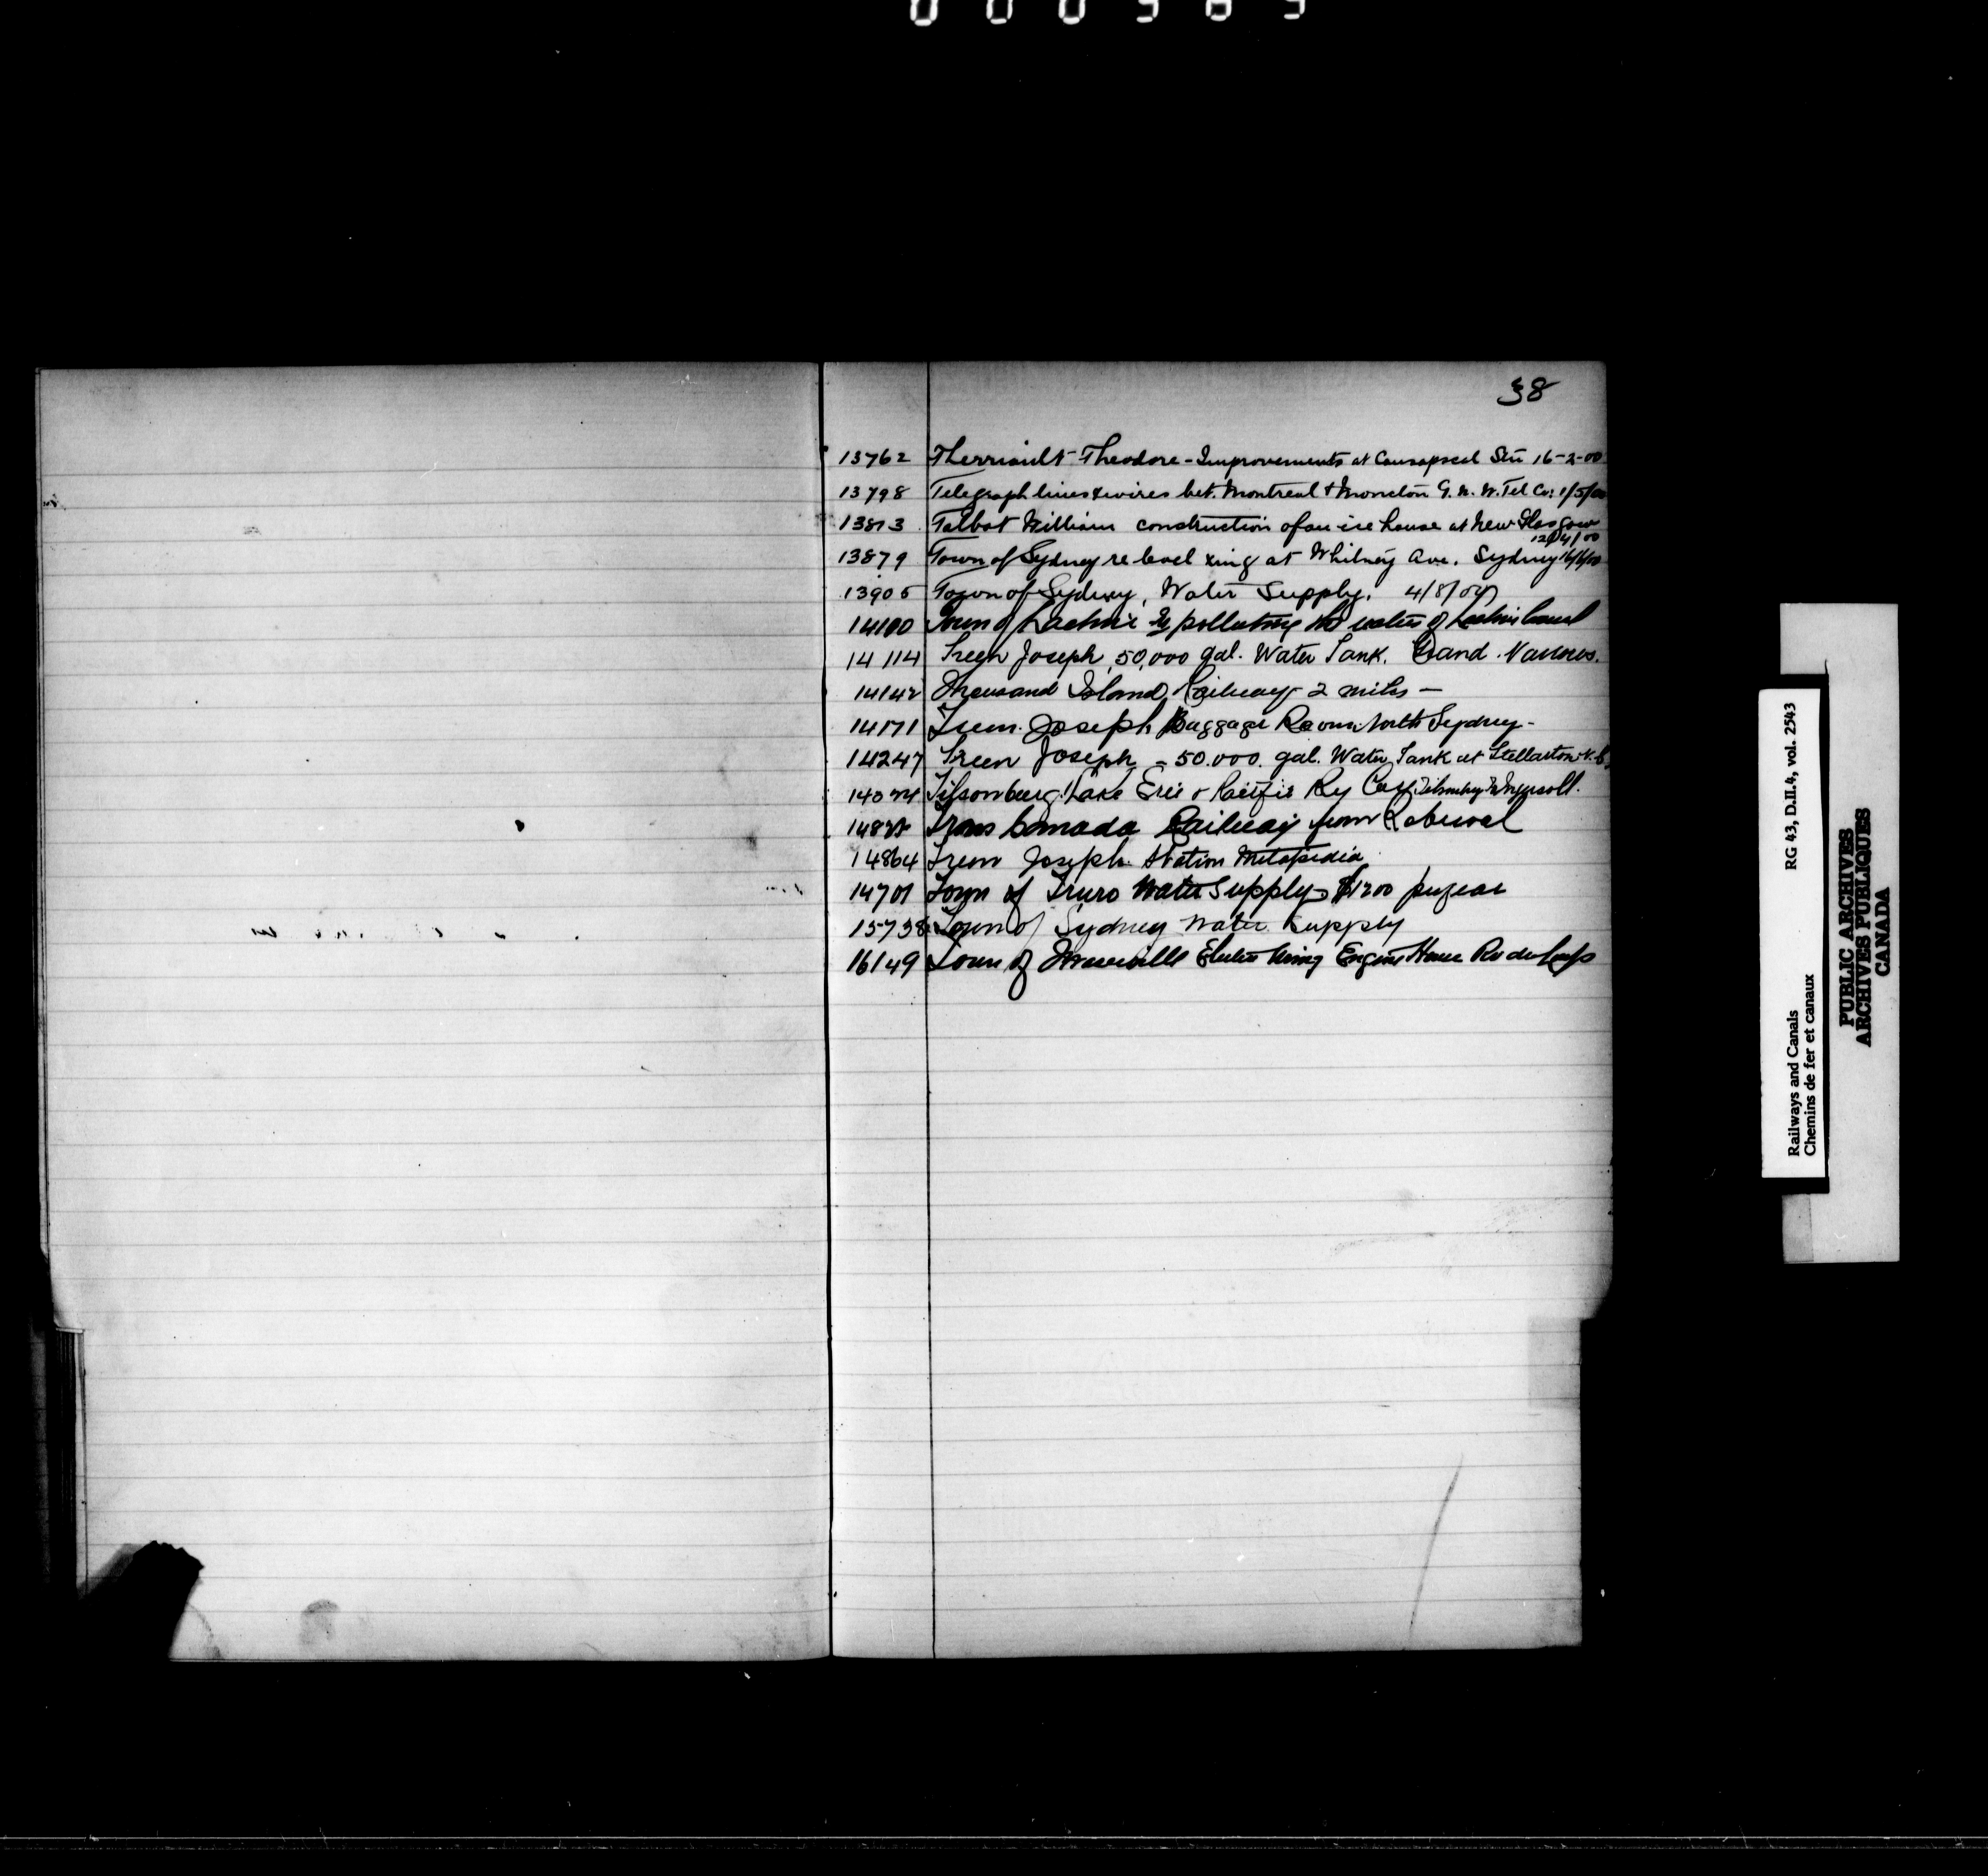 38
13762 Therriault Theodore - Improvements at Causapscal Stn 16-2-00
13798 Telegraph lines & wires bet. Montreal & Moncton G. N. W. Tel Co: 1/5/00
13813 Talbot William construction of an ice house at New Glasgow
12/4/00
13879 Town of Sydney re level xing at Whitney Ave. Sydney 16/6/00
13905 Town of Sydney, Water Supply. 4/8/00
14100 Town of Lachine Re polluting the water of Lachine Canal
14114 Treen Joseph, 50,000 gal. Water Tank. Grand
14142 Thousand Island Railway 2 miles —
14171 Treen Joseph Baggage Room North Sydney -
14247 Treen Joseph - 50.000. gal. Water Tank at Stellarton N.S.
Tilsonburg Lake Erie & Pacific Ry Coy Ingersoll.
Trans Canada Railway from Roberval
14864 Treen Joseph Station Metapedia
14701 Town of Truro Water Supply $1200 per year
15738 Town of Sydney Water Supply
16149 Town of Fraserville Electric Wiring Engine House Riv du Loup
Railways and Canals RG 43, D.II.4, vol. 2543
Chemins de fer et canaux
PUBLIC ARCHIVES
ARCHIVES PUBLIQUES
CANADA